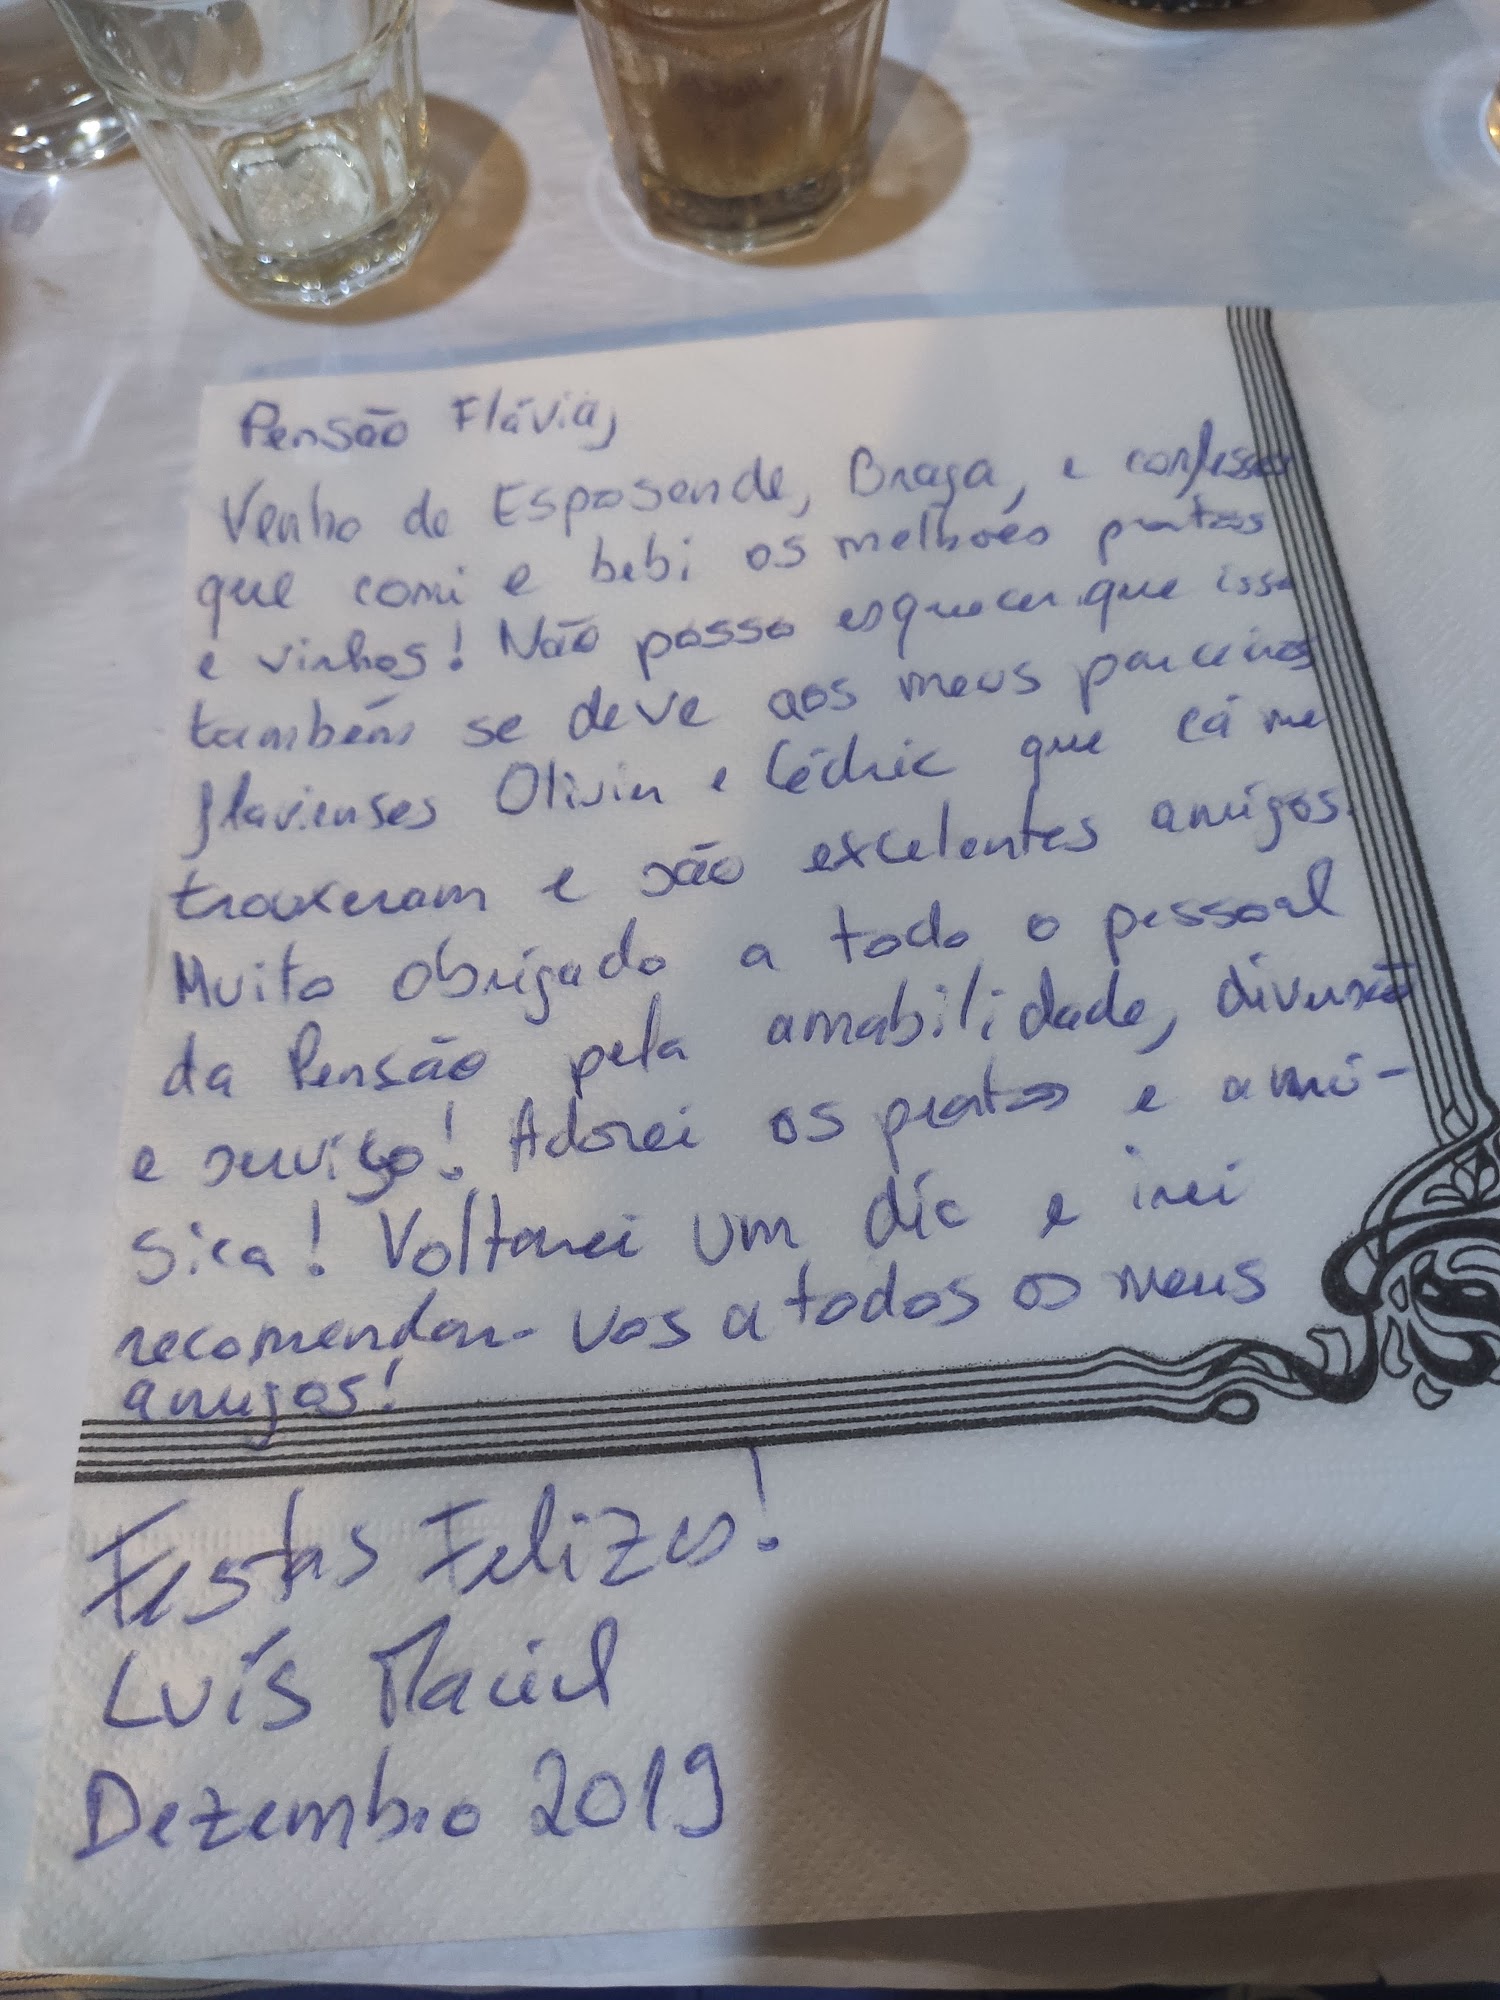 Pensão Flávia,
Venho de Esposende, Braga, e confesso
que comi e bebi os melhores pratos
e vinhos! Não posso esquecer que isso
também se deve aos meus parceiros
flavienses Olivia e Cédric que cá me
trouxeram e são excelentes amigos.
Muito obrigado a todo o pessoal
da Pensão pela amabilidade, diversão
e serviço! Adorei os pratos e a mú-
sica! Voltarei um dia e irei
recomendar-vos a todos os meus
amigos!
Festas Felizes!
Luís Maciel
Dezembro 2019